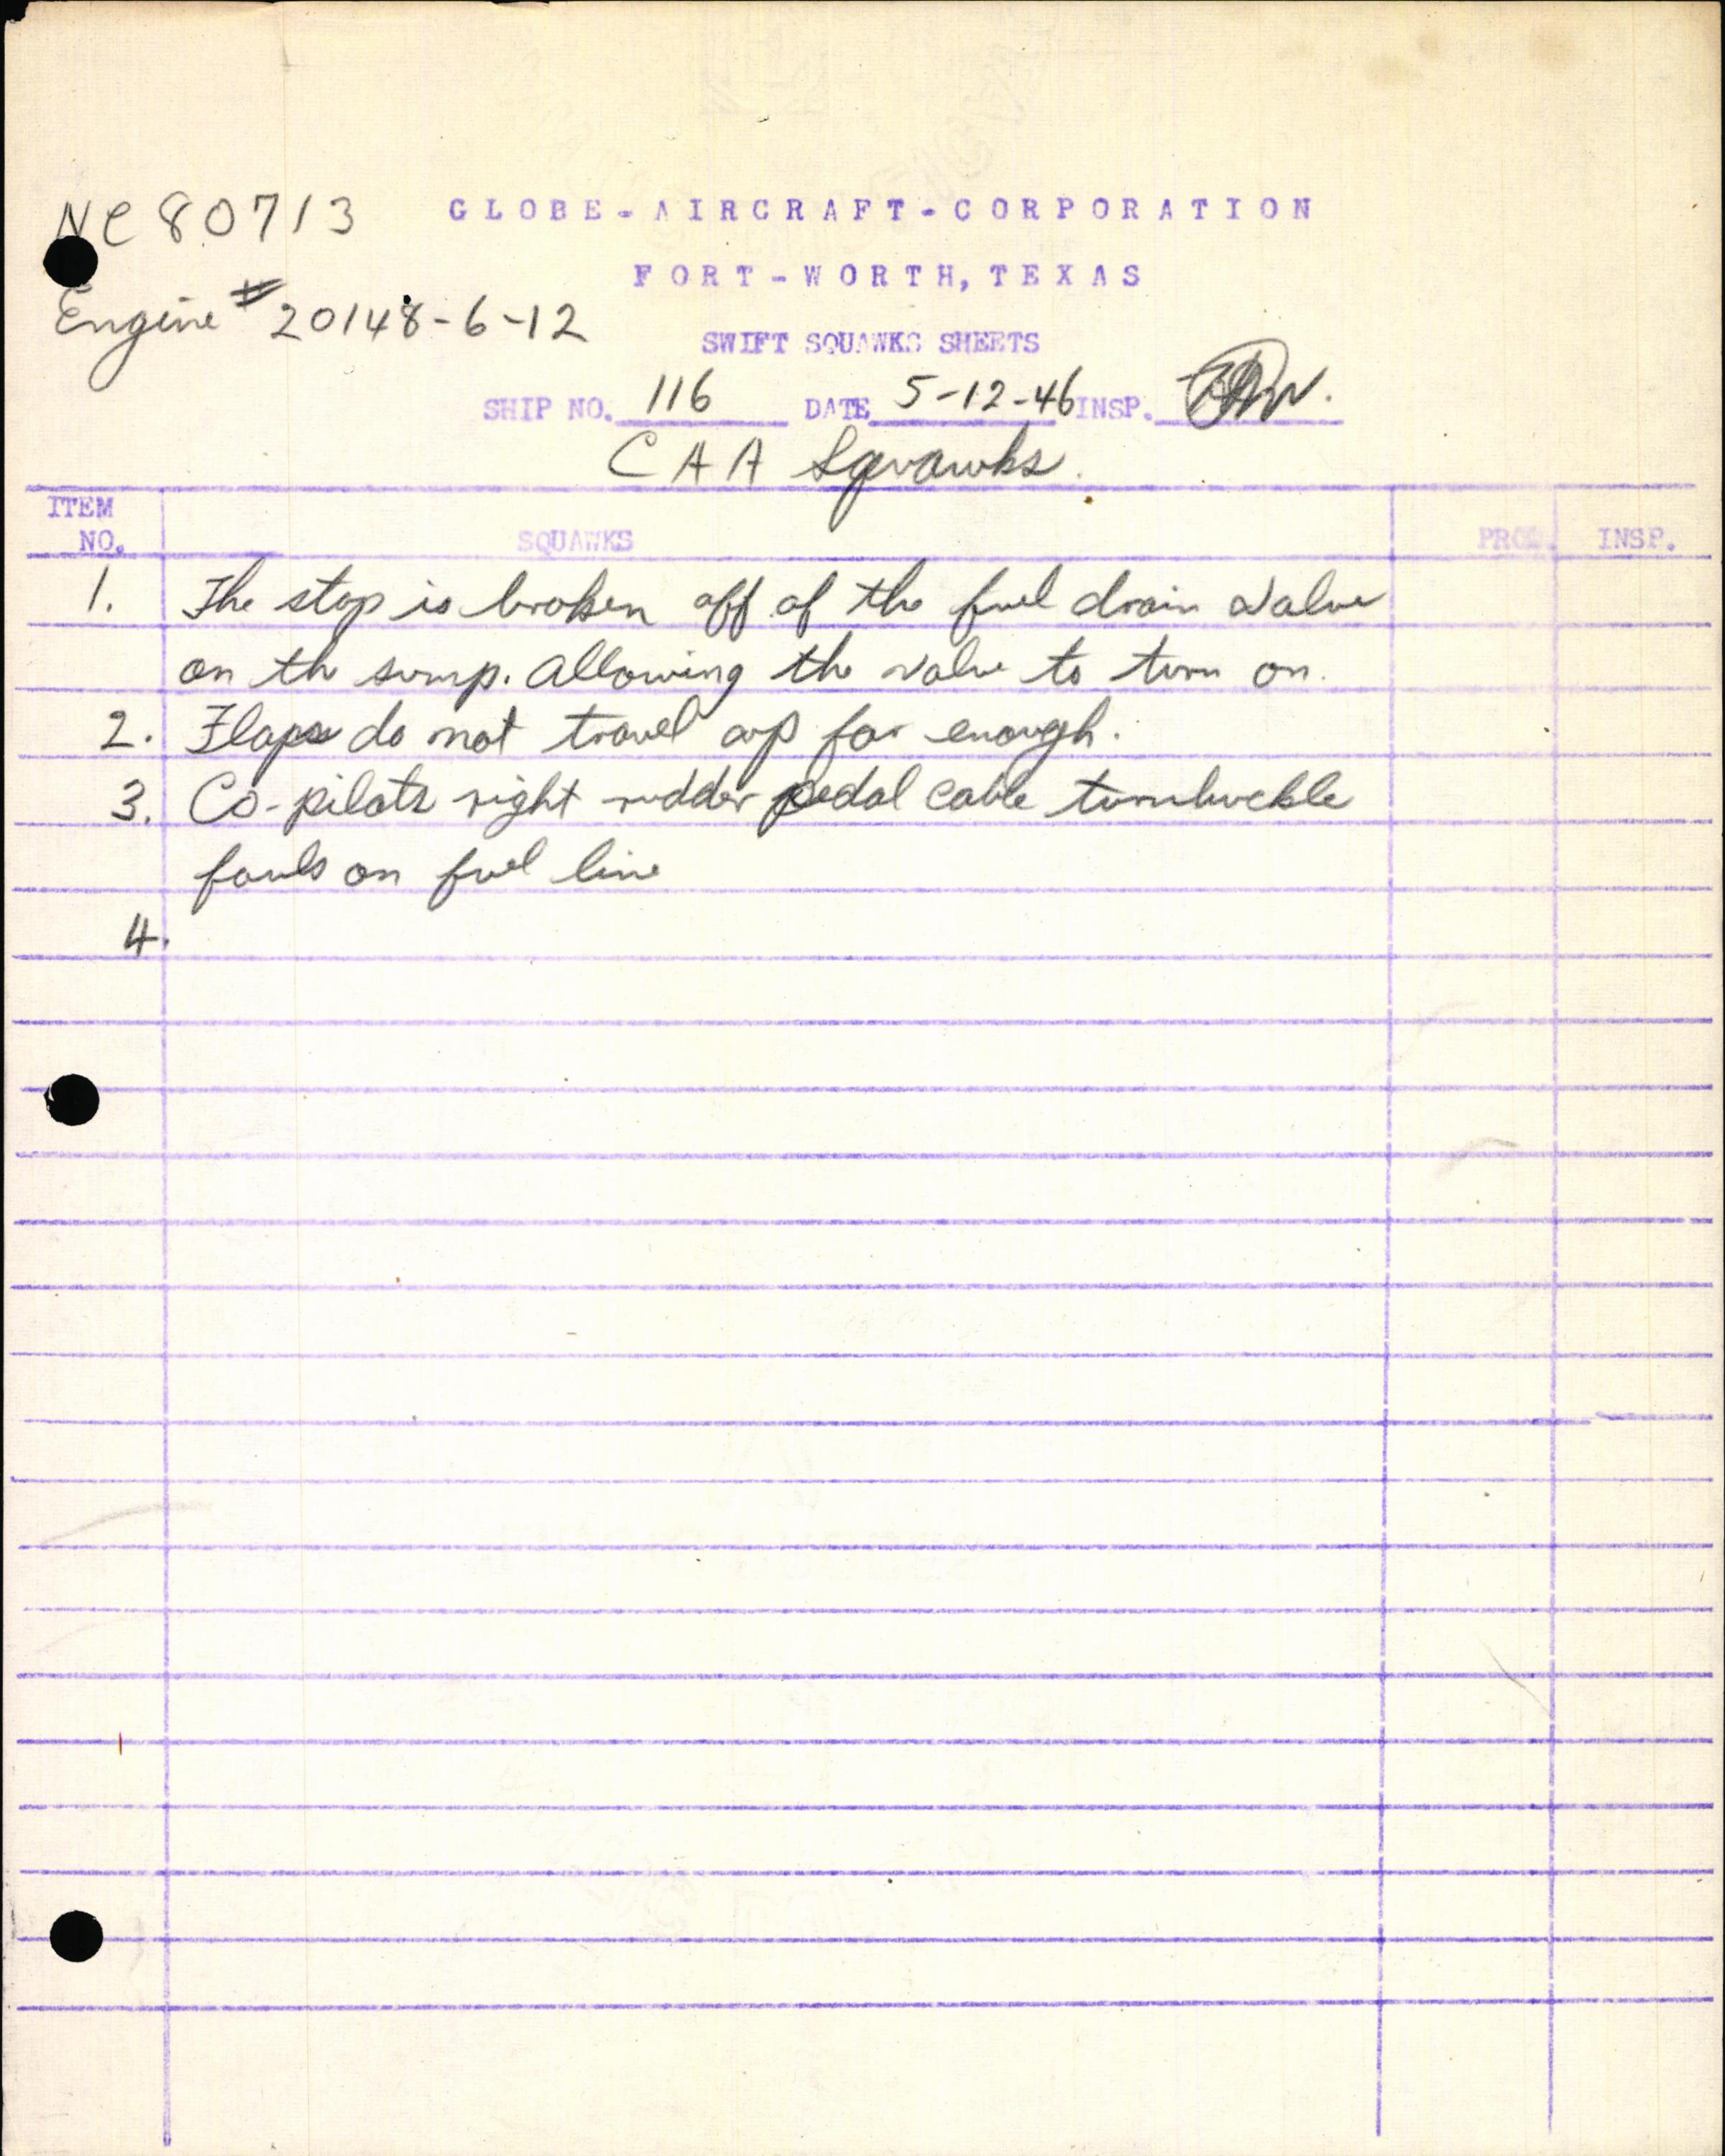 NC 80713
GLOBE-AIRCRAFT-CORPORATION
FORT-WORTH, TEXAS
Engine # 20148-6-12
SWIFT SQUAWKS SHEETS
SHIP NO. 116 DATE 5-12-46 INSP.
CAA Squawks.
ITEM
NO. SQUAWKS PROD. INSP.
1. The stop is broken off of the fuel drain valve
on the sump. Allowing the valve to turn on.
2. Flaps do not travel up far enough.
3. Co-pilots right rudder pedal cable turnbuckle
fouls on fuel line
4.